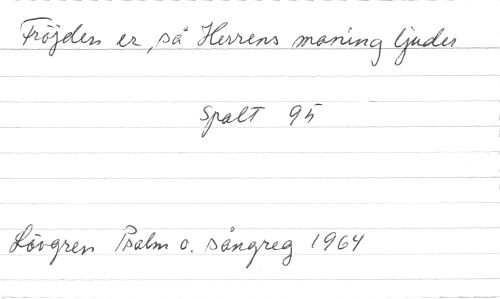 Fröjden er, så Herrens maning ljuder
Spalt 95
Lövgren Psalm o. sångreg 1964